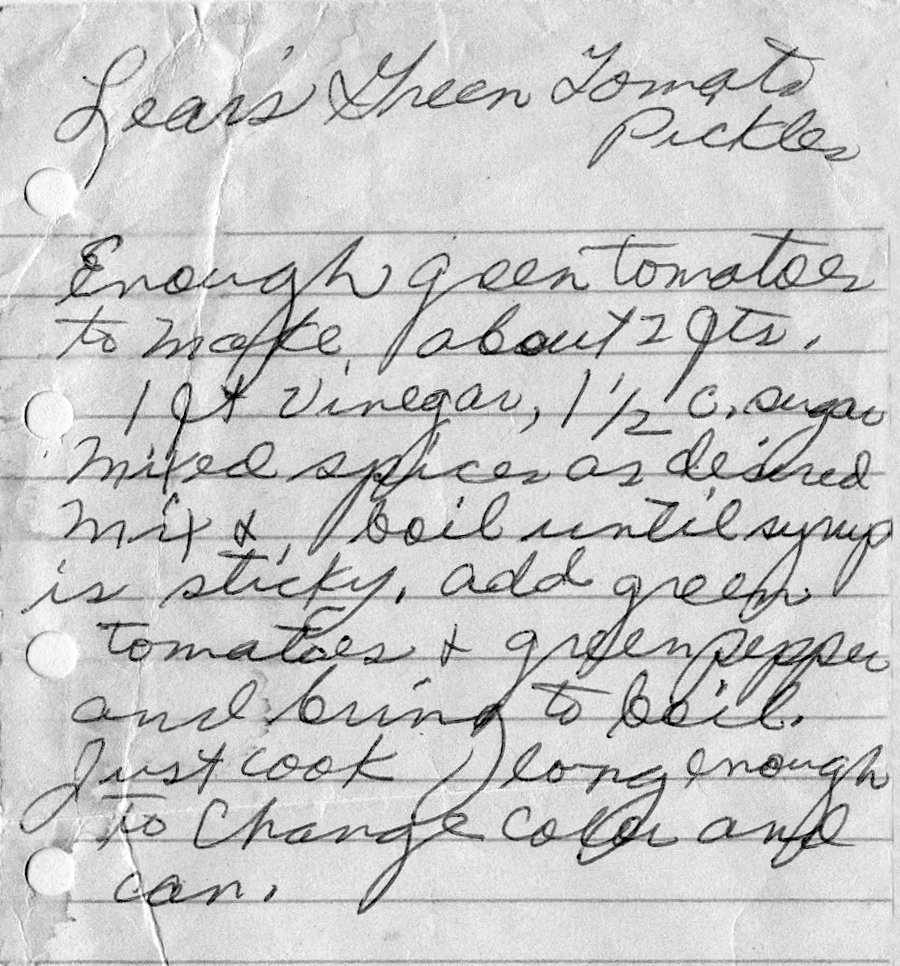 Lear's Green Tomato
Pickles
Enough green tomatoes
to make about 2 qts.
1 qt vinegar, 1 1/2 c. sugar
mixed spices as desired
mix & boil until syrup
is sticky. add green
tomatoes & green pepper
and bring to boil.
Just cook long enough
to change color and
can.